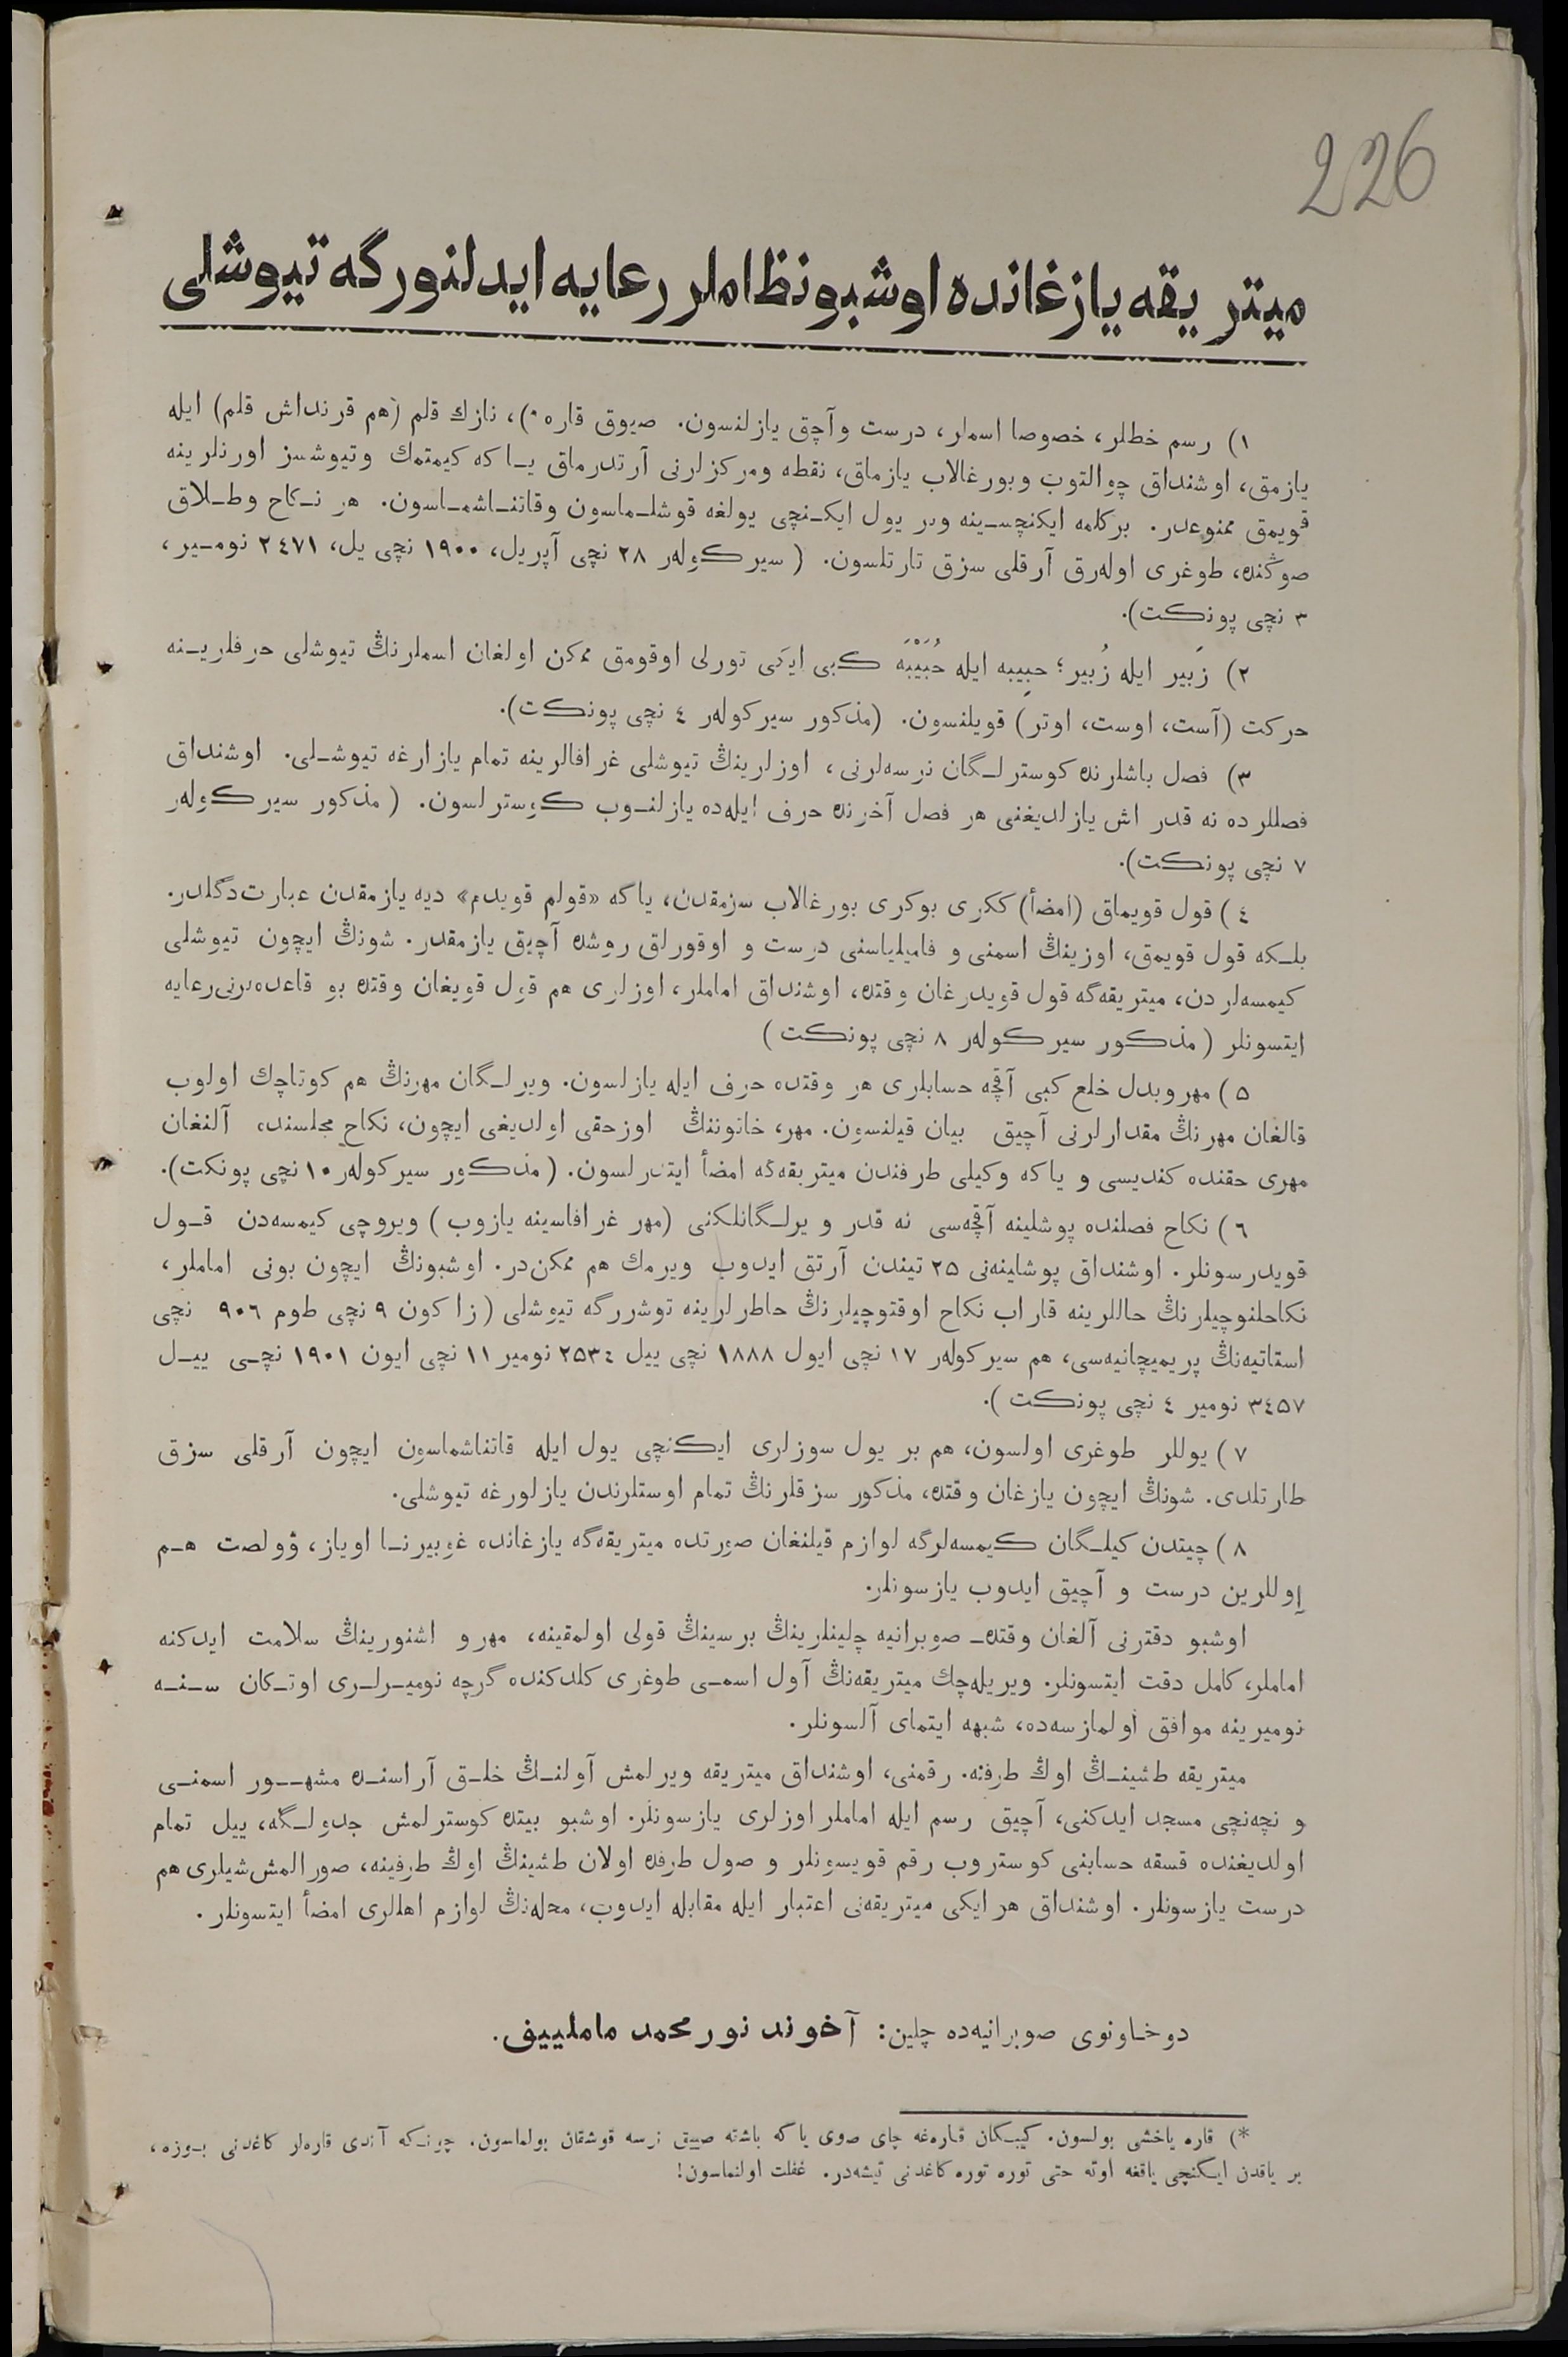 226
ميتريقه يازغانده اوشبو نظاملر رعايه ايدلنورگه تيوشلى
١) رسم خطلر، خصوصا اسملر، درست وآچق يازلنسون. صيوق قاره *)، نازك قلم (هم قرنداش قلم) ايله
يازمق، اوشنداق چوالتوب وبورغالاب يازماق، نقطه ومركزلرنى آرتدرماق يـا كه كيمتمك وتيوشسز اورنلرينه
قويمق ممنوعدر. بركلمه ايكنچسـينه وبر يول ايكـنچى يولغه قوشلـماسون وقاتنـاشمـاسون. هر نـكاح وطـلاق
صوڭنده، طوغرى اولەرق آرقلى سزق تارتلسون. (سيركولەر ٢٨ نچى آپريل، ١٩٠٠ نچى يل، ٢٤٧١ نومـير،
٣ نچى پونكت).
٢) زَبير ايله زُبير؛ حبِيبه ايله حُبَيْبَه كبى ايكى تورلى اوقومق ممكن اولغان اسملرنڭ تيوشلى حرفلريـنه
حركت (آست، اوست، اوتر) قويلنسون. (مذكور سيركولەر ٤ نچى پونكت).
٣) فصل باشلرنده كوسترلـگان نرسەلرنى، اوزلرينڭ تيوشلى غرافالرينه تمام يازارغه تيوشـلى. اوشنداق
فصللرده نه قدر اش يازلديغنى هر فصل آخرنده حرف ايلەده يازلنـوب كوسترلسون. (مذكور سيركولەر
٧ نچى پونكت).
٤) قول قويماق (امضأ) ككرى بوكرى بورغالاب سزمقدن، ياكه «قولم قويدم» ديه يازمقدن عبارت دگلدر.
بلـكه قول قويمق، اوزينڭ اسمنى و فاميلياسنى درست و اوقورلق روشده آچيق يازمقدر. شونڭ ايچون تيوشلى
كيمسەلردن، ميتريقەگه قول قويدرغان وقتده، اوشنداق اماملر، اوزلرى هم قول قويغان وقتده بو قاعدەلرنى رعايه
ايتسونلر (مذكور سيركولەر ٨ نچى پونكت)
٥) مهر وبدل خلع كبى آقچه حسابلرى هر وقتده حرف ايله يازلسون. ويرلـگان مهرنڭ هم كوتاچك اولوب
قالغان مهرنڭ مقدارلرنى آچيق بيان قيلنسون. مهر، خاتوننڭ اوز حقى اولديغى ايچون، نكاح مجلسنده آلنغان
مهرى حقنده كنديسى و ياكه وكيلى طرفندن ميتريقەگه امضأ ايتدرلسون. (مذكور سيركولەر ١٠ نچى پونكت).
٦) نكاح فصلنده پوشلينه آقچەسى نه قدر ويرلـگانلكنى (مهر غرافاسينه يازوب) ويروچى كيمسەدن قـول
قويدرسونلر. اوشنداق پوشلينەنى ٢٥ تيندن آرتق ايدوب ويرمك هم ممكن در. اوشبونڭ ايچون بونى اماملر،
نكاحلنوچيلرنڭ حاللرينه قاراب نكاح اوقتوچيلرنڭ خاطرلرينه توشررگه تيوشلى (زاكون ٩ نچى طوم ٩٠٦ نچى
استاتيەنڭ پريميچانيەسى، هم سيركولەر ١٧ نچى ايول ١٨٨٨ نچى ييل ٢٥٣٤ نومير ١١ نچى ايون ١٩٠١ نچـى ييـل
٣٤٥٧ نومير ٤ نچى پونكت).
٧) يوللر طوغرى اولسون، هم بر يول سوزلرى ايكنچى يول ايله قاتناشماسون ايچون آرقلى سزق
طارتلدى. شونڭ ايچون يازغان وقتده، مذكور سزقلرنڭ تمام اوستلرندن يازلورغه تيوشلى.
٨) چيتدن كيلـگان كيمسەلرگه لوازم قيلنغان صورتده ميتريقەگه يازغانده غوبيرنـا اوياز، ۋولصت هـم
إوللرين درست و آچيق ايدوب يازسونلر.
اوشبو دفترنى آلغان وقتده ـ صوبرانيه چلينلرينڭ برسينڭ قولى اولمقينه، مهر و اشنورينڭ سلامت ايدكنه
اماملر، كامل دقت ايتسونلر. ويريلەچك ميتريقەنڭ آول اسمـى طوغرى كلدكنده گرچه نوميـرلـرى اوتـكان سـنـه
نوميرينه موافق اولمازسەده، شبهه ايتماى آلسونلر.
ميتريقه طشينـڭ اوڭ طرفنه. رقمنى، اوشنداق ميتريقه ويرلمش آولنـڭ خلـق آراسنـده مشهــور اسمنـى
و نچەنچى مسجد ايدكنى، آچيق رسم ايله اماملر اوزلرى يازسونلر. اوشبو بيتده كوسترلمش جدولـگه، ييل تمام
اولديغنده قسقه حسابنى كوستروب رقم قويسونلر و صول طرفده اولان طشينڭ اوڭ طرفينه، صورالمش شيلرى هم
درست يازسونلر. اوشنداق هر ايكى ميتريقەنى اعتبار ايله مقابله ايدوب، محلەنڭ لوازم اهللرى امضأ ايتسونلر.
دوخـاونوى صوبرانيەده چلين: آخوند نور محمد ماملييف.
*) قاره ياخشى بولسون. كيبـكان قارەغه چاى صوى ياكه باشقه صيق نرسه قوشقان بولماسون. چونـكه آندى قارەلر كاغدنى بـوزه،
بر ياقدن ايـكنچى ياقغه اوته حتى توره توره كاغدنى تيشەدر. غفلت اولنماسون!